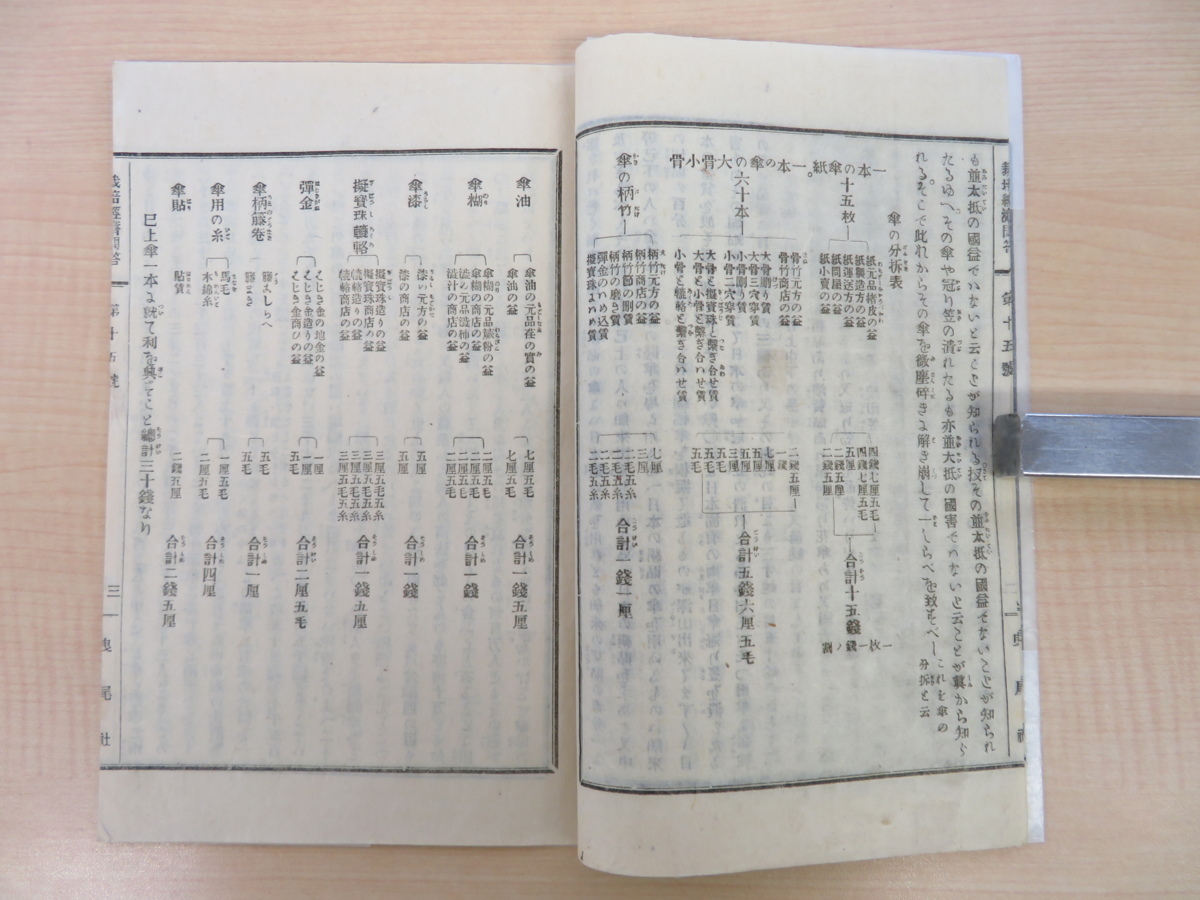 も並大抵の國益でかないと云ことが知られる扨その並大抵の國益でないことが知られ
たるゆへその傘や冠り笠の潰れたるも亦並大抵の國害でハないと云ことが翼から知ら
れるそこで此れからその傘を微塵碎きよ解き崩して一しらべを致そべし これを傘の分拆と云
傘の分拆表
一本の傘紙
十五枚
紙元品楮皮の益
紙製造方の益
紙運送方の益
紙問屋の益
紙小賣の益
四錢七厘五毛
四錢七厘五毛
五厘
二錢五厘
二錢五厘
合計十五錢
一枚一錢ノ割
一本の傘の大骨小骨
六十本
骨竹元方の益
骨竹商店の益
大骨削り賃
大骨三穴穿賃
小骨削り賃
小骨二穴穿賃
大骨と擬寶珠と繋ぎ合いせ賃
大骨と小骨と繋ぎ合いせ賃
小骨と轆轤と繋ぎ合いせ賃
二錢五厘
一錢
七厘
五厘
五厘
三厘
五毛
五毛
合計五錢六厘五毛
傘の柄竹
柄竹元方の益
柄竹商店の益
柄竹節の削賃
柄竹の磨き賃
彈金のいめ込賃
擬寶珠よいめ賃
七厘
三厘
合計一錢一厘
傘油
傘油の元品荏の實の益
傘油の益
七厘五毛
七厘五毛
合計一錢五厘
傘糊
傘糊の元品蕨粉の益
傘糊の商店の益
澁の元品澁柿の益
澁汁の商店の益
二厘五毛
二厘五毛
二厘五毛
二厘五毛
合計一錢
傘漆
漆い元方の益
漆の商店の益
五厘
五厘
合計一錢
擬寶珠轆轤
擬寶珠造りの益
擬寶珠商店の益
轆轤造りの益
轆轤商店の益
三厘五毛五糸
三厘五毛五糸
三厘五毛五糸
三厘五毛五糸
合計一錢五厘
彈金
はじき金の地金の益
はじき金造りの益
はじき金商ひの益
一厘
一厘
五毛
合計二厘五毛
傘柄籐卷
籐こしらへ
籐まき
五毛
五毛
合計一厘
傘用の糸
馬毛
木綿糸
一厘五毛
二厘五毛
合計四厘
傘貼
貼賃
二錢五厘
合計二錢五厘
巳上傘一本よ就て利を興そこと總計三十錢なり
栽培經濟問答
第十五號
三
曳尾社